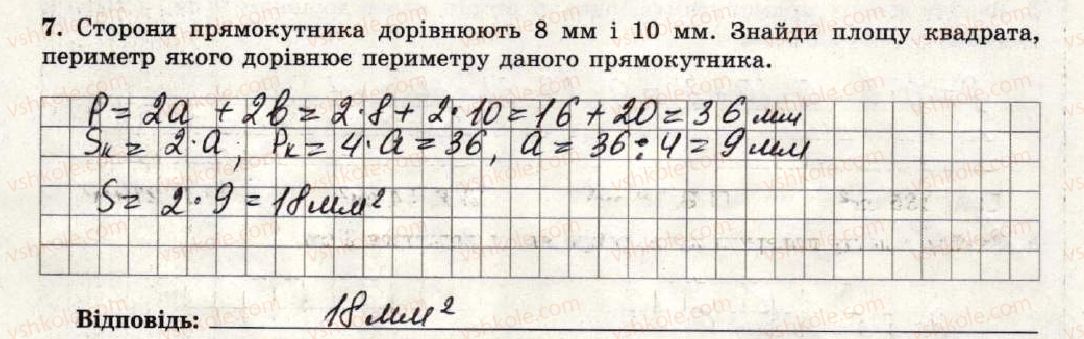 7. Сторони прямокутника дорівнюють 8 мм і 10 мм. Знайди площу квадрата,
периметр якого дорівнює периметру даного прямокутника.
P = 2a + 2b = 2·8 + 2·10 = 16 + 20 = 36 мм
Sк = 2·a; Pк = 4·a = 36, a = 36:4 = 9 мм
S = 2·9 = 18 мм²
Відповідь: 18 мм²